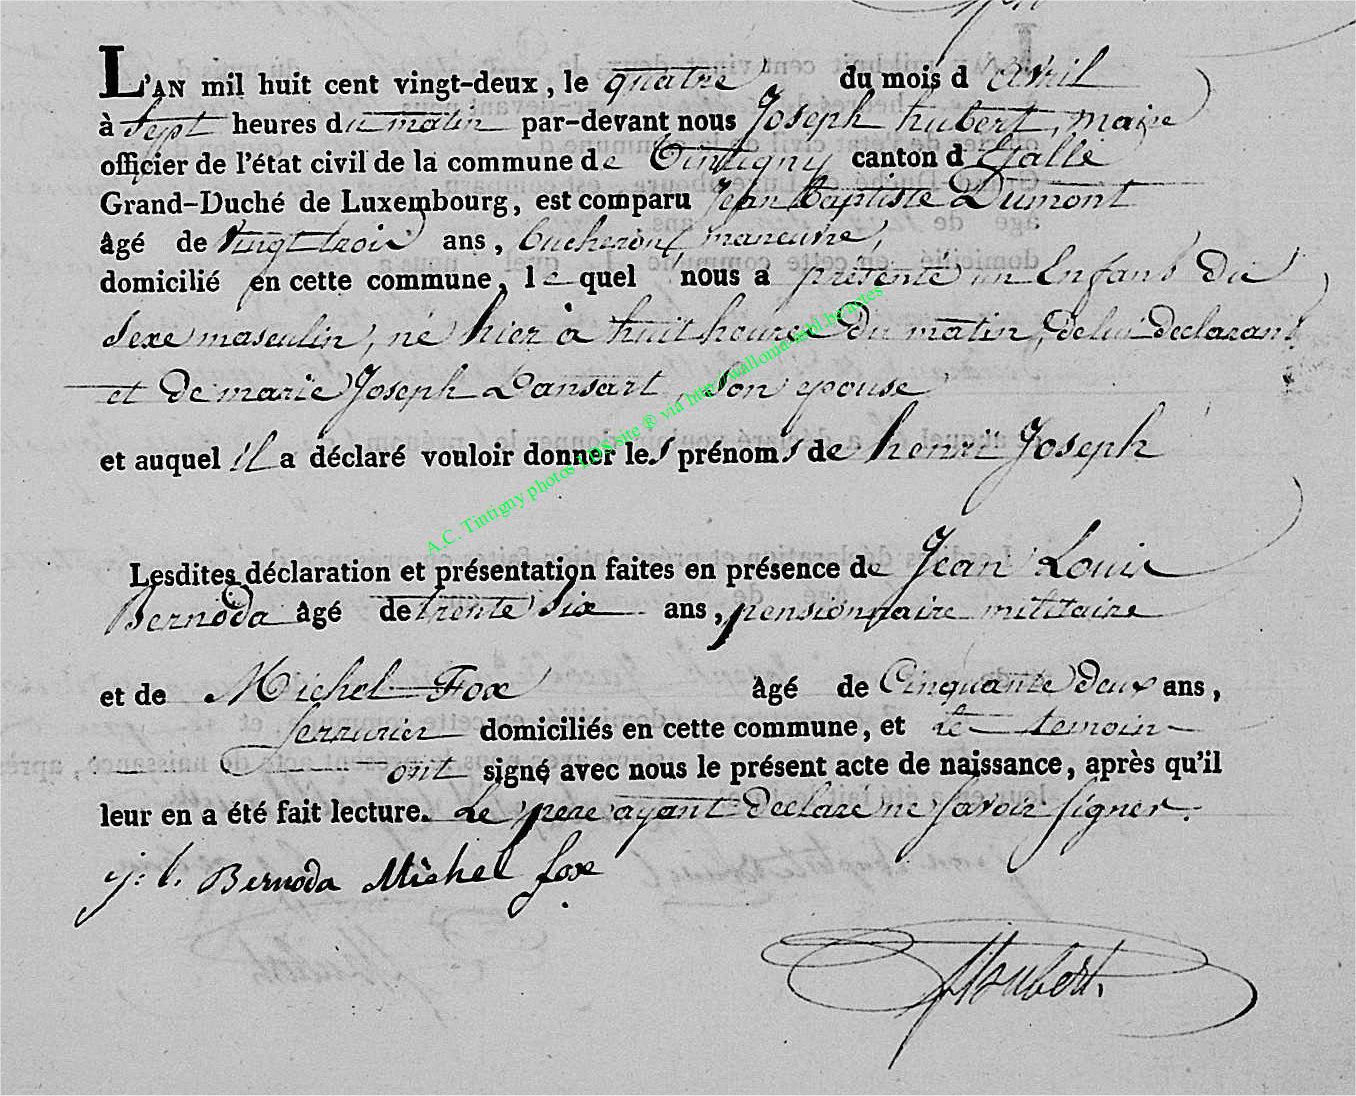 L'AN mil huit cent vingt-deux, le quatre du mois d'avril
à Sept heures du matin par-devant nous Joseph hubert, maire
officier de l'état civil de la commune de Tintigny canton d'Etalle
Grand-Duché de Luxembourg, est comparu Jean Baptiste Dumont
âgé de vingt trois ans, bucheron manœuvre,
domicilié en cette commune, lequel nous a présenté un Enfant du
Sexe masculin, né hier à huit heures du matin, de lui declarant
et De marie Joseph Dansart, son epouse
et auquel il a déclaré vouloir donner les prénoms de henri Joseph
Lesdites déclaration et présentation faites en présence de Jean Louis
Bernoda âgé de trente Six ans, pensionnaire militaire
et de Michel Fox âgé de Cinquante Deux ans,
Serrurier domiciliés en cette commune, et le temoin
ont signé avec nous le présent acte de naissance, après qu'il
leur en a été fait lecture. Le pere ayant declaré ne savoir signer.
j. l. Bernoda Michel fox
Hubert
A.C. Tintigny photos LDS site ® via http://wallonia-asbl.be/actes